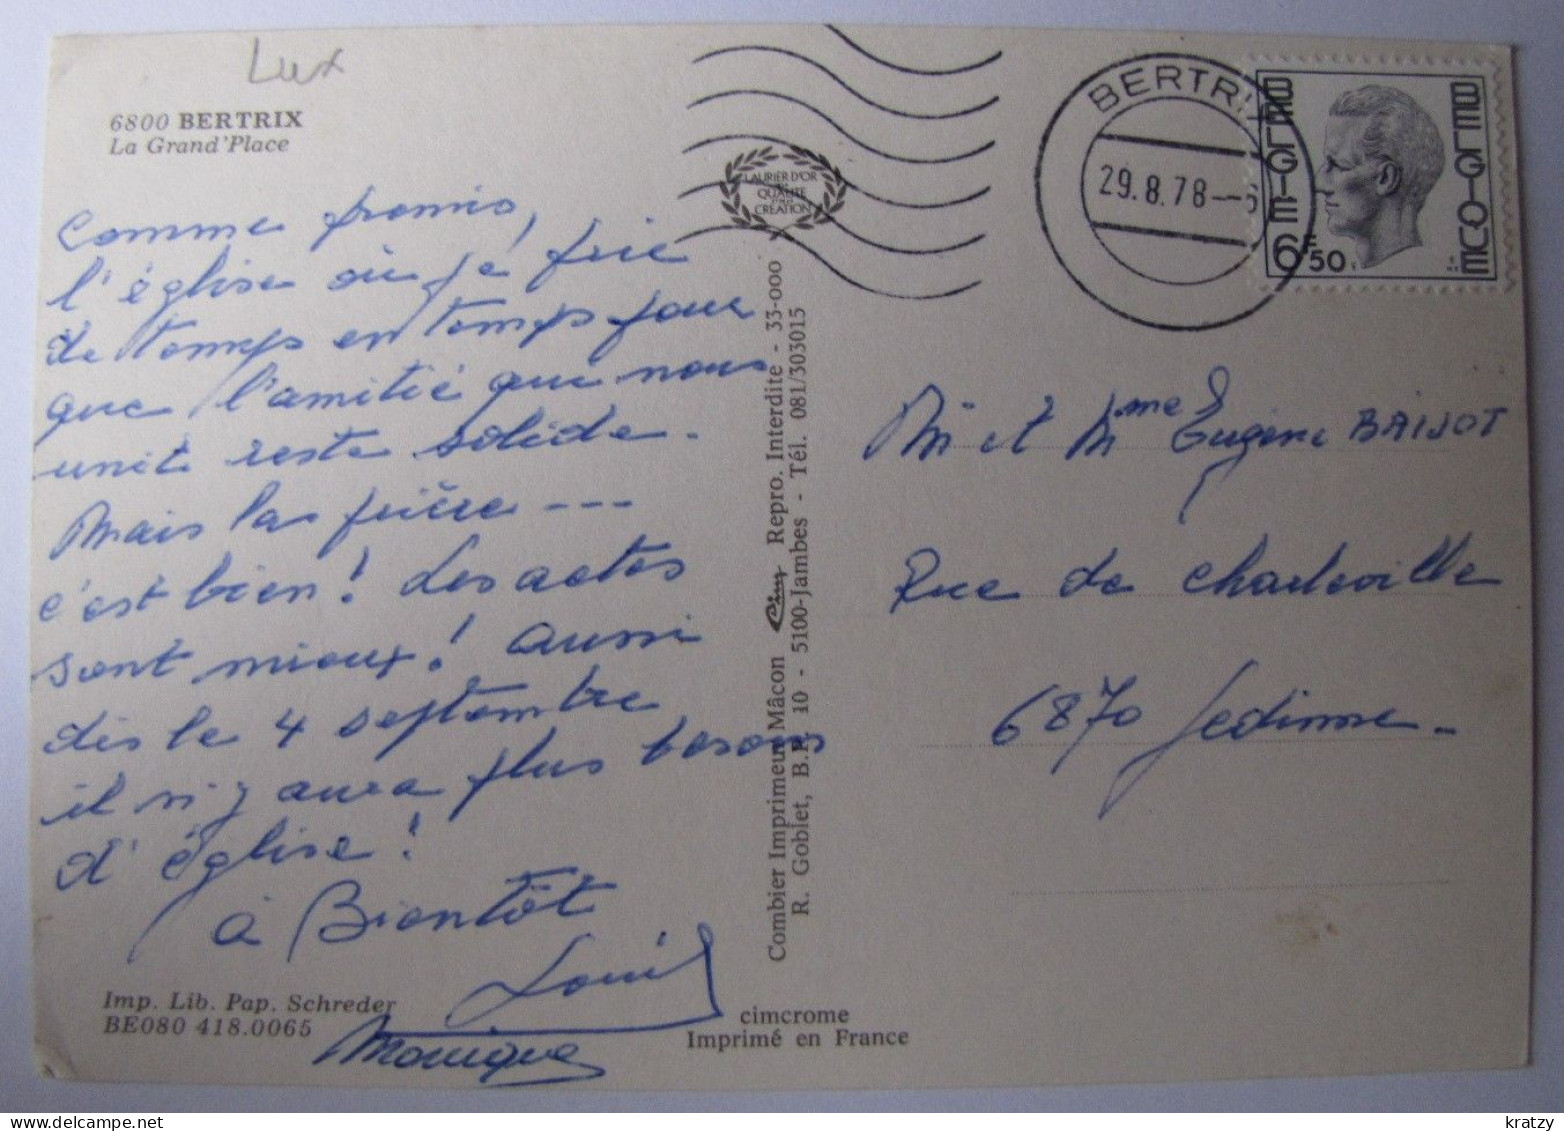 Lux
6800 BERTRIX
La Grand'Place
Comme promis,
l'église où je prie
de temps en temps pour
que l'amitié qui nous
unit reste solide.
Mais la prière ---
c'est bien! Les actes
sont mieux! Aussi
dès le 4 septembre
il n'y aura plus besoin
d'église!
à Bientôt
Louis
Monique
Imp. Lib. Pap. Schreder
BE080 418.0065
LAURIER D'OR
QUALITÉ
CRÉATION
Combier Imprimeur Mâcon Cim Repro. Interdite - 33-000
R. Goblet, B.P. 10 - 5100-Jambes - Tél. 081/303015
cimcrome
Imprimé en France
BERTRIX
29.8.78-6
BELGIE BELGIQUE
6F50
Mr et Mme Eugène BAIJOT
Rue de Charleville
6870 Gedinne.
kratzy